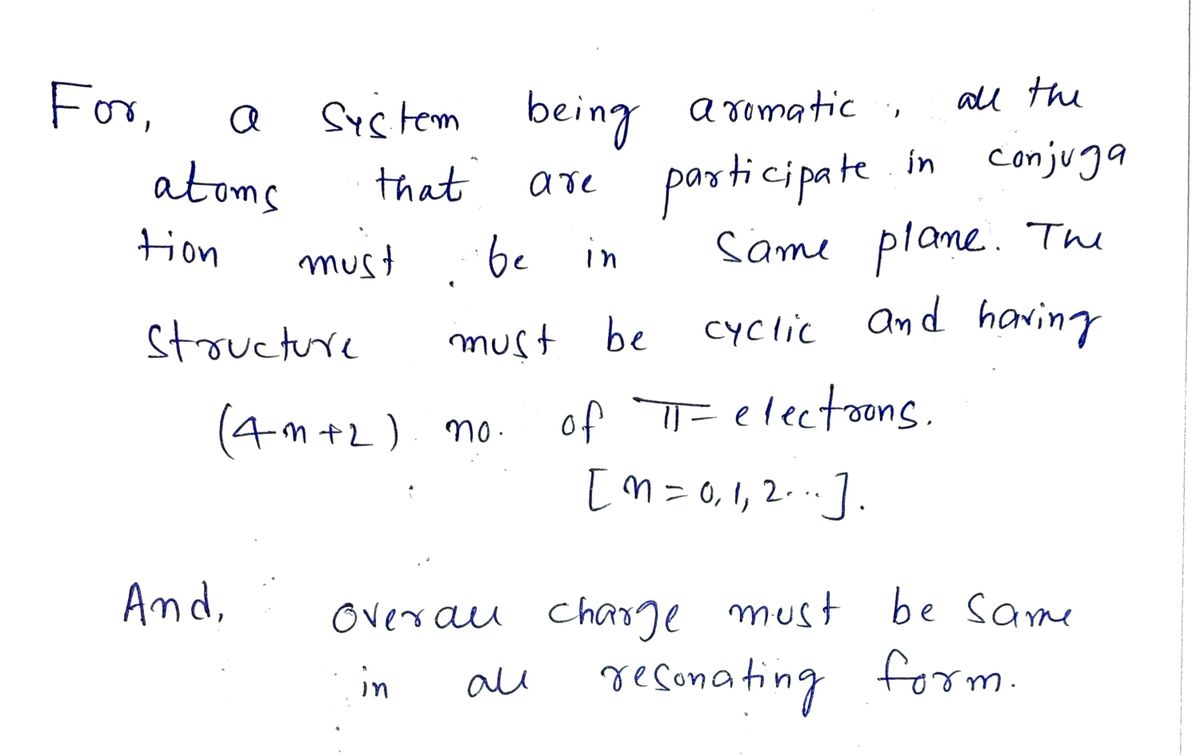 For, a system being aromatic, all the
atoms that are participate in conjuga
tion must be in same plane. The
structure must be cyclic and having
(4n+2) no. of π-electrons.
[n=0,1,2...].
And, overall charge must be same
in all resonating form.